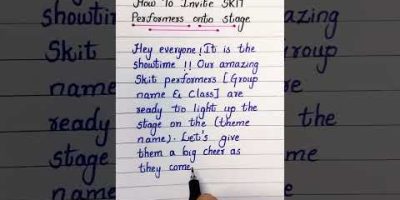 How To Invitie SKIT
Performers onto stage
Hey everyone! It is the
showtime !! Our amazing
Skit performers [Group
name & Class] are
ready to light up the
stage on the (theme
name). Let's give
them a big cheer as
they come